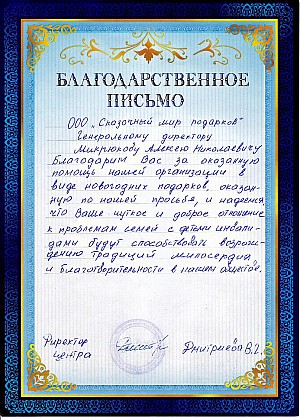 БЛАГОДАРСТВЕННОЕ
ПИСЬМО
ООО „Сказочный мир подарков"
Генеральному директору
Микрюкову Алексею Николаевичу
Благодарим Вас за оказанную
помощь нашей организации в
виде новогодних подарков, оказан-
ную по нашей просьбе, и надеемся,
что Ваше чуткое и доброе отношение
к проблемам семей с детьми инвали-
дами будут способствовать возрож-
дению традиций милосердия
и благотворительности в нашем обществе.
Директор
центра
Дмитриева В.И.